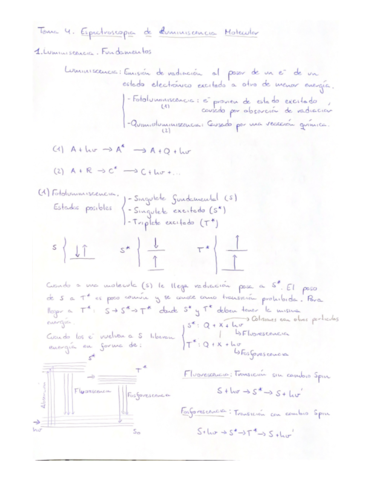 Tema 4. Espectroscopia de Luminiscencia Molecular
1. Luminiscencia. Fundamentos
Luminiscencia: Emisión de radiación al pasar de un e⁻ de un
estado electrónico excitado a otro de menor energía.
- Fotoluminiscencia: e⁻ proviene de estado excitado
(1) causado por absorción de radiación
- Quimioluminiscencia: Causado por una reacción química.
(2)
(1) A + hν → A* → A + Q + hν
(2) A + R → C* → C + hν + ...
(1) Fotoluminiscencia:
Estados posibles
- Singulete fundamental (S)
- Singulete excitado (S*)
- Triplete excitado (T*)
S S* T*
Cuando a una molécula (S) le llega radiación pasa a S*. El paso
de S a T* es poco común y se conoce como transición prohibida. Para
llegar a T* S → S* → T* donde S* y T* deben tener la misma
energía
Cuando los e⁻ vuelven a S liberan
energía en forma de:
S*: Q + X + hν
↳ Fluorescencia
T*: Q + X + hν
↳ Fosforescencia
S* T*
Fluorescencia Fosforescencia
hν S₀
Fluorescencia: Transición sin cambio Spin
S + hν → S* → S + hν'
Fosforescencia: Transición con cambio Spin
S + hν → S* → T* → S + hν'